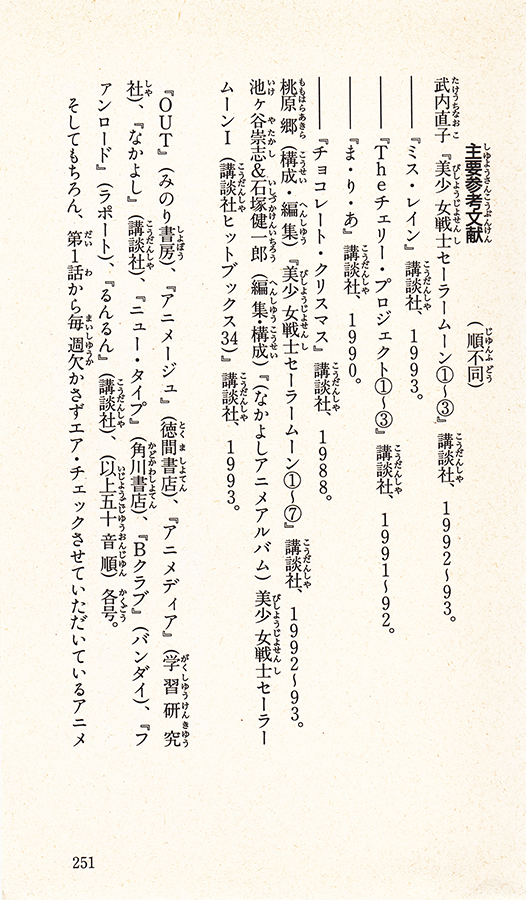 主要参考文献　（順不同）
武内直子『美少女戦士セーラームーン①〜③』講談社、1992〜93。
――『ミス・レイン』講談社、1993。
――『Theチェリー・プロジェクト①〜③』講談社、1991〜92。
――『ま・り・あ』講談社、1990。
――『チョコレート・クリスマス』講談社、1988。
桃原郷（構成・編集）『美少女戦士セーラームーン①〜⑦』講談社、1992〜93。
池ヶ谷崇志&石塚健一郎（編集・構成）『（なかよしアニメアルバム）美少女戦士セーラー
ムーンⅠ（講談社ヒットブックス34）』講談社、1993。
『OUT』（みのり書房）、『アニメージュ』（徳間書店）、『アニメディア』（学習研究
社）、『なかよし』（講談社）、『ニュー・タイプ』（角川書店）、『Bクラブ』（バンダイ）、『フ
アンロード』（ラポート）、『るんるん』（講談社）、（以上五十音順）各号。
そしてもちろん、第1話から毎週欠かさずエア・チェックさせていただいているアニメ
251